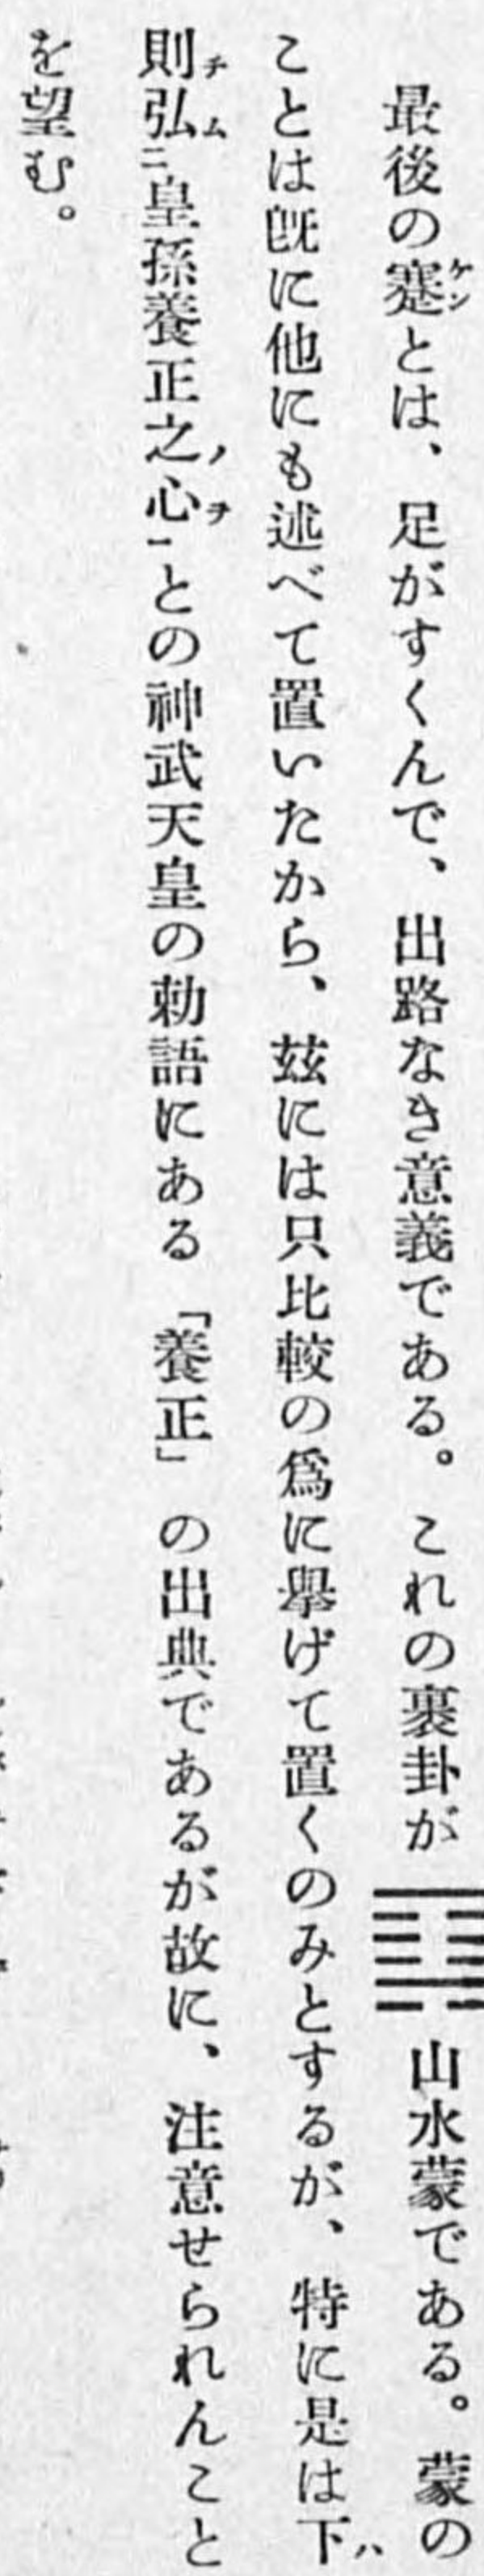 最後の蹇とは、足がすくんで、出路なき意義である。これの裏卦が䷃山水蒙である。蒙の
ことは既に他にも述べて置いたから、玆には只比較の爲に擧げて置くのみとするが、特に是は下ハ
則チ弘ム二皇孫養正之ノ心ヲ一との神武天皇の勅語にある「養正」の出典であるが故に、注意せられんこと
を望む。